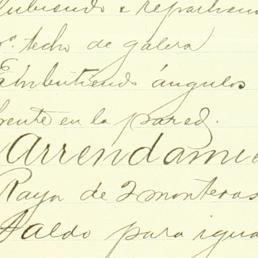 ubiendo e reparhend
oª techo de galera
Exhibutiendo ángulos
frente en la pared.
Arrendamie
Raya de 2 monteras
Saldo para igua